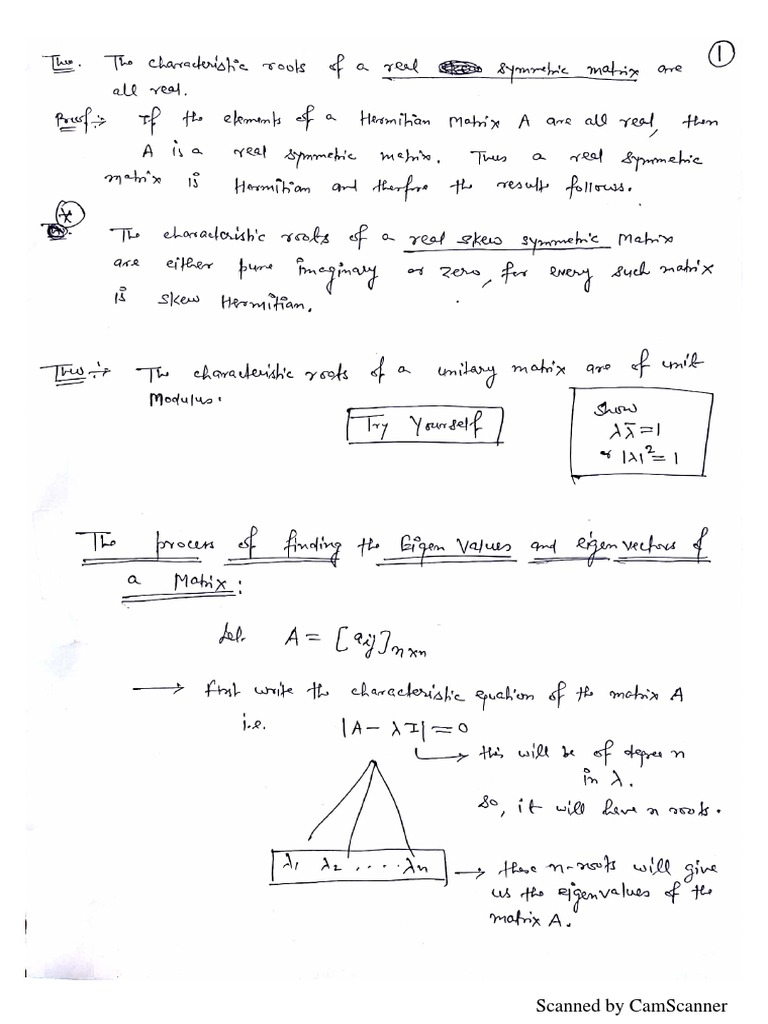 ①
Thm. The characteristic roots of a real symmetric matrix are
all real.
Proof :- If the elements of a Hermitian Matrix A are all real, then
A is a real symmetric matrix. Thus a real symmetric
matrix is Hermitian and therefore the result follows.
*
The characteristic roots of a real skew symmetric Matrix
are either pure imaginary or zero, for every such matrix
is skew Hermitian.
Thm :- The characteristic roots of a unitary matrix are of unit
Modulus.
Try Yourself
Show
λλ̄ = 1
or |λ|² = 1
The process of finding the Eigen Values and eigen vectors of
a Matrix :
Let. A = [aij]n×n
→ First write the characteristic equation of the matrix A
i.e. |A - λI| = 0
→ this will be of degree n
in λ.
So, it will have n roots.
λ1 λ2 ..... λn
→ these n-roots will give
us the eigenvalues of the
matrix A.
Scanned by CamScanner